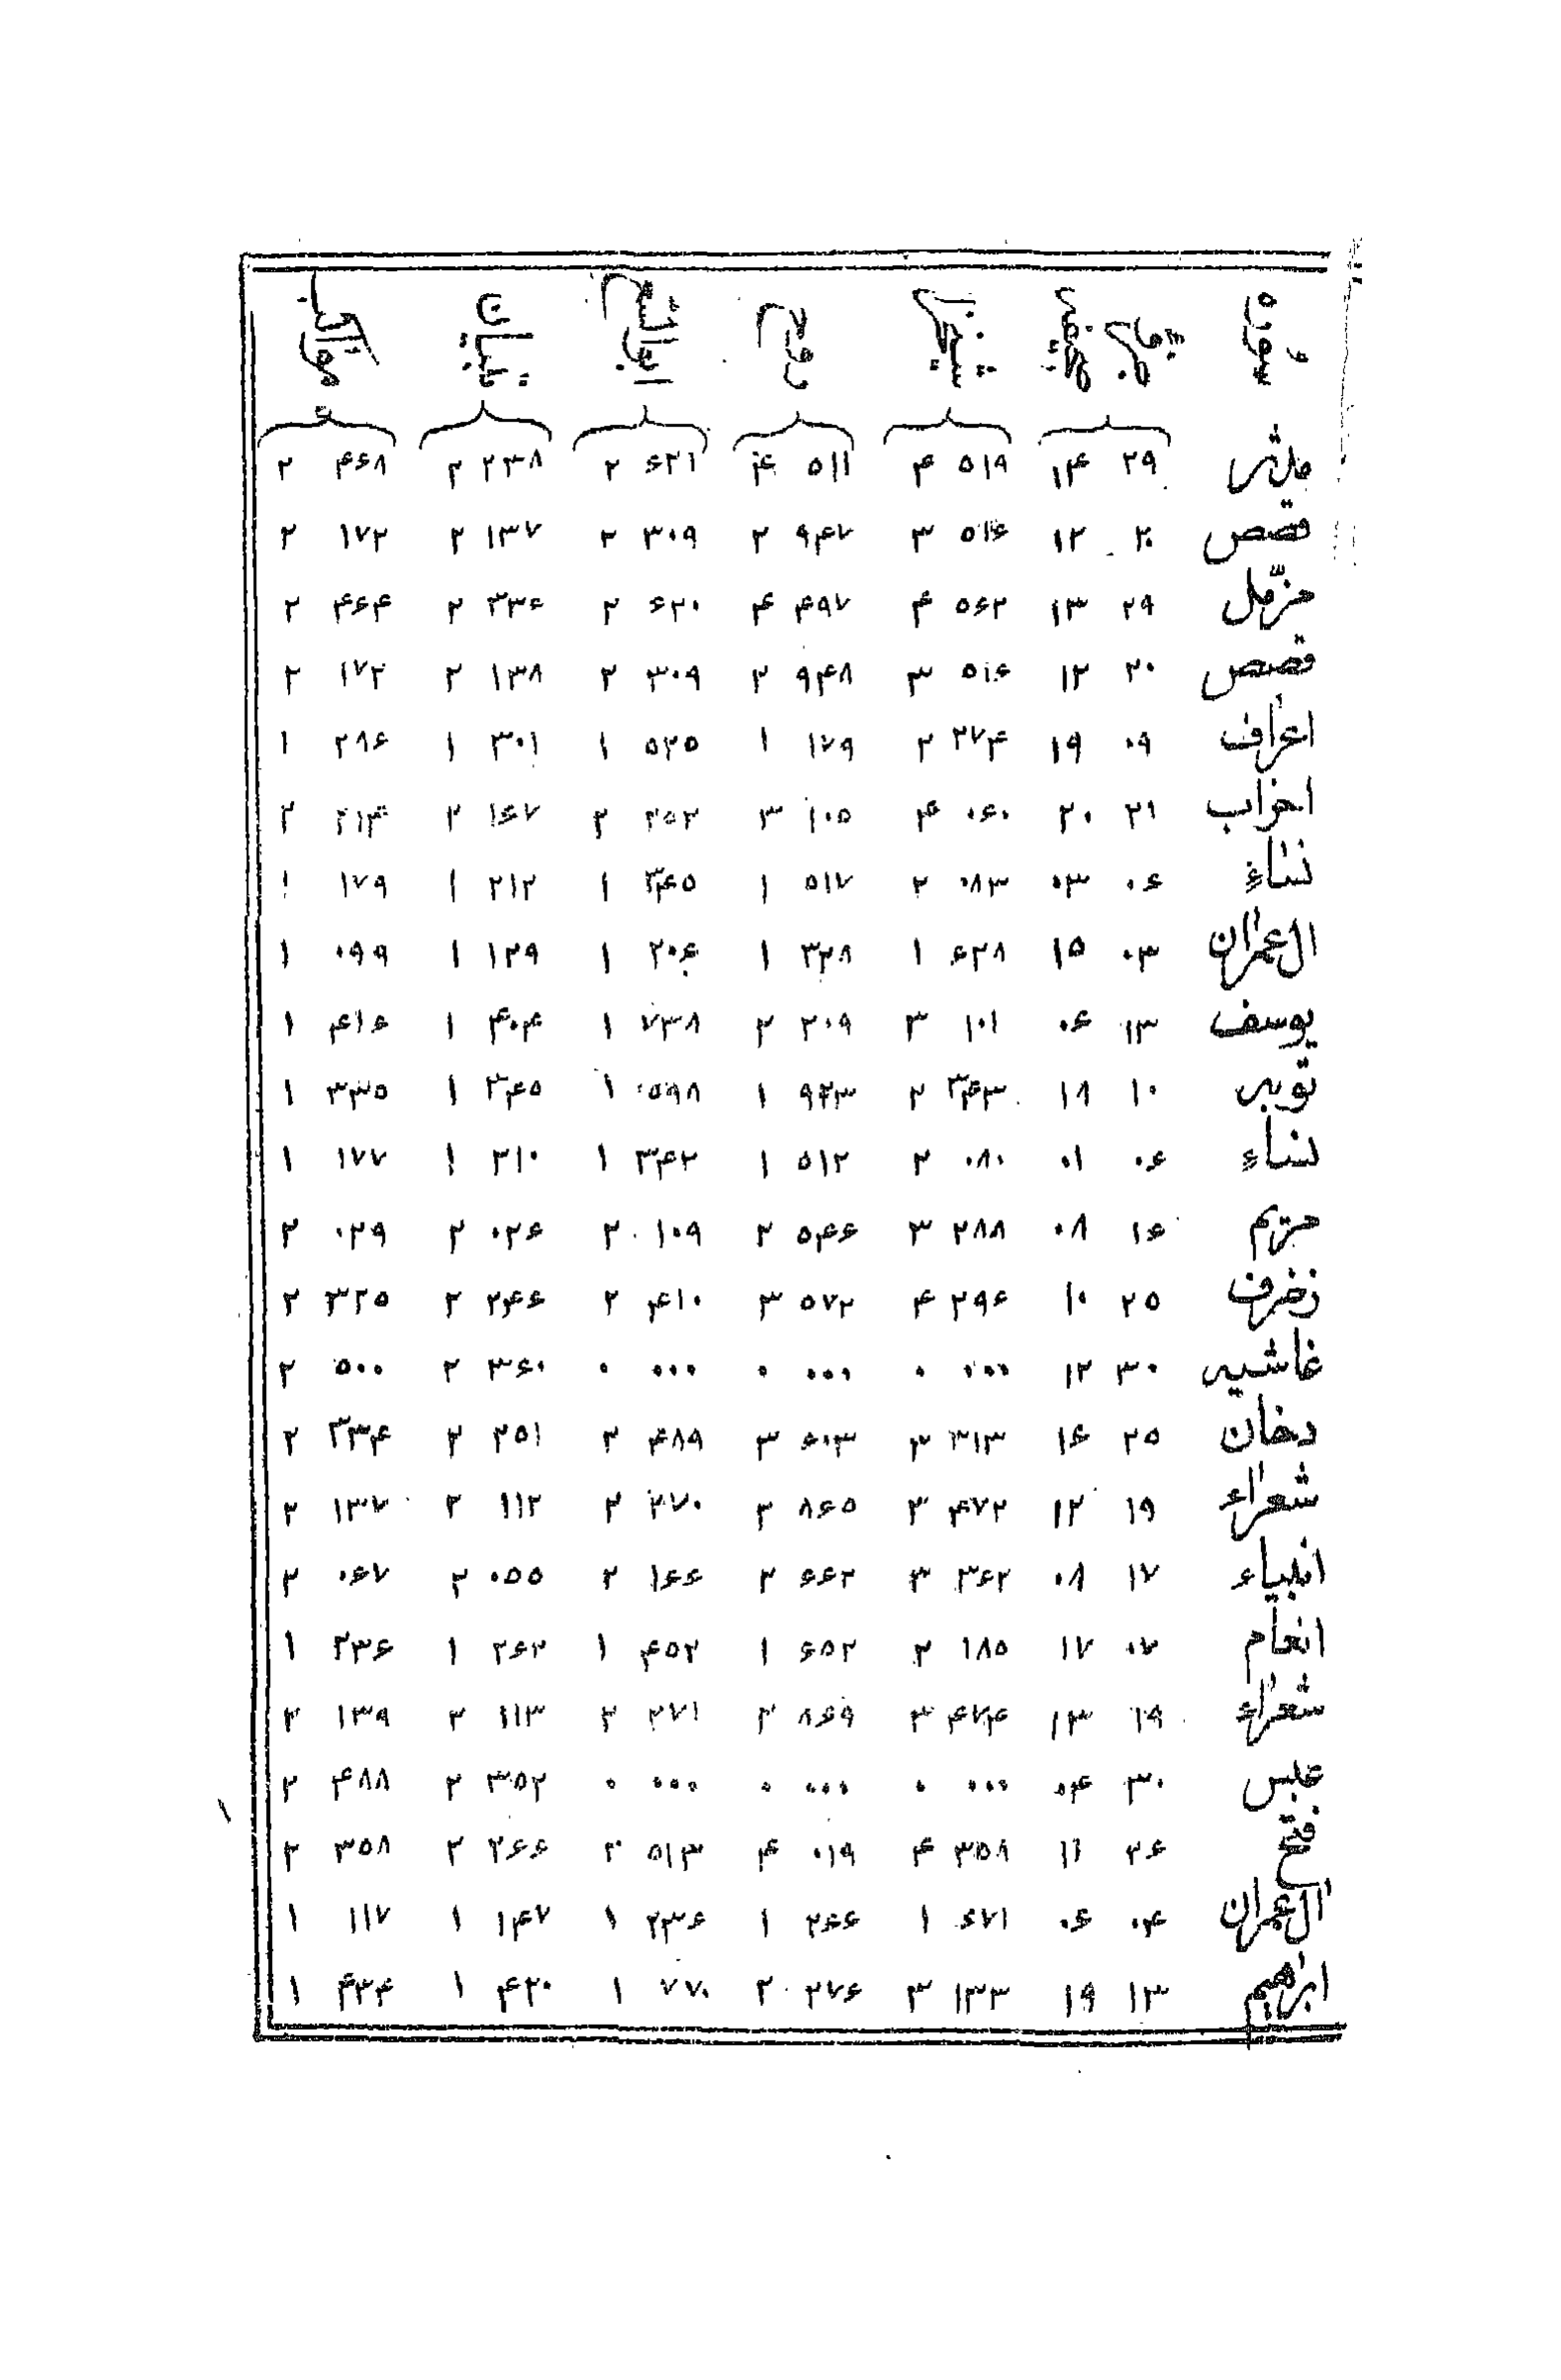 سوره
مدثر ۲۹ ۱۴ ۵۱۹ ۴ ۵۱۱ ۴ ۶۲۱ ۲ ۲۳۸ ۲ ۴۶۸ ۲
قصص ۲۰ ۱۲ ۵۱۶ ۳ ۹۴۷ ۲ ۳۰۹ ۲ ۱۳۷ ۲ ۱۷۲ ۲
مزّمل ۲۹ ۱۳ ۵۶۲ ۴ ۴۹۷ ۴ ۶۲۰ ۲ ۳۳۶ ۲ ۴۶۴ ۲
قصص ۲۰ ۱۲ ۵۱۶ ۳ ۹۴۸ ۲ ۳۰۹ ۲ ۱۳۸ ۲ ۱۷۲ ۲
اعراف ۰۹ ۱۹ ۲۷۴ ۲ ۱۷۹ ۱ ۵۲۵ ۱ ۳۰۱ ۱ ۲۸۶ ۱
احزاب ۲۱ ۲۰ ۰۶۰ ۴ ۱۰۵ ۳ ۳۵۲ ۲ ۱۶۷ ۲ ۲۱۴ ۲
نساء ۰۶ ۰۳ ۰۸۳ ۲ ۵۱۷ ۱ ۳۴۵ ۱ ۲۱۲ ۱ ۱۷۹ ۱
ال عمران ۰۳ ۱۵ ۶۲۸ ۱ ۳۲۸ ۱ ۲۰۶ ۱ ۱۲۹ ۱ ۰۹۹ ۱
یوسف ۱۳ ۰۶ ۱۰۱ ۳ ۲۰۹ ۲ ۷۳۸ ۱ ۴۰۴ ۱ ۴۱۶ ۱
توبه ۱۰ ۱۸ ۳۴۳ ۲ ۹۲۳ ۱ ۵۹۸ ۱ ۳۴۵ ۱ ۳۳۵ ۱
نساء ۰۶ ۰۱ ۰۸۰ ۲ ۵۱۲ ۱ ۳۴۲ ۱ ۲۱۰ ۱ ۱۷۷ ۱
مریم ۱۶ ۰۸ ۲۸۸ ۳ ۵۴۶ ۲ ۱۰۹ ۲ ۰۲۶ ۲ ۰۲۹ ۲
زخرف ۲۵ ۱۰ ۲۹۶ ۴ ۵۷۲ ۳ ۴۱۰ ۲ ۲۴۶ ۲ ۳۲۵ ۲
غاشیه ۳۰ ۱۲ ۰۰۰ ۰ ۰۰۰ ۰ ۰۰۰ ۰ ۳۶۰ ۲ ۵۰۰ ۲
دخان ۲۵ ۱۶ ۳۱۳ ۳ ۶۰۳ ۳ ۴۸۹ ۲ ۲۵۱ ۲ ۳۳۴ ۲
شعراء ۱۹ ۱۲ ۴۷۲ ۳ ۸۶۵ ۲ ۲۷۰ ۲ ۱۱۲ ۲ ۱۳۷ ۲
انبیاء ۱۷ ۰۸ ۳۶۲ ۳ ۶۶۲ ۲ ۱۶۶ ۲ ۰۵۵ ۲ ۰۶۷ ۲
انعام ۰۷ ۱۷ ۱۸۵ ۲ ۶۵۲ ۱ ۴۵۲ ۱ ۲۶۲ ۱ ۲۳۶ ۱
شعراء ۱۹ ۱۳ ۴۷۴ ۳ ۸۶۹ ۲ ۲۷۱ ۲ ۱۱۳ ۲ ۱۳۹ ۲
عبس ۳۰ ۰۴ ۰۰۰ ۰ ۰۰۰ ۰ ۰۰۰ ۰ ۳۵۲ ۲ ۴۸۸ ۲
فتح ۲۶ ۱۱ ۳۵۸ ۴ ۰۱۹ ۴ ۵۱۳ ۲ ۲۶۶ ۲ ۳۵۸ ۲
ال عمران ۰۴ ۰۶ ۶۷۱ ۱ ۲۶۶ ۱ ۲۳۶ ۱ ۱۴۷ ۱ ۱۱۷ ۱
ابراهیم ۱۳ ۱۹ ۱۳۳ ۳ ۲۷۶ ۲ ۷۷۰ ۱ ۴۲۰ ۱ ۴۳۴ ۱